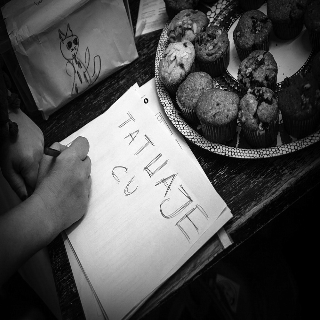 TATUAJE
CU